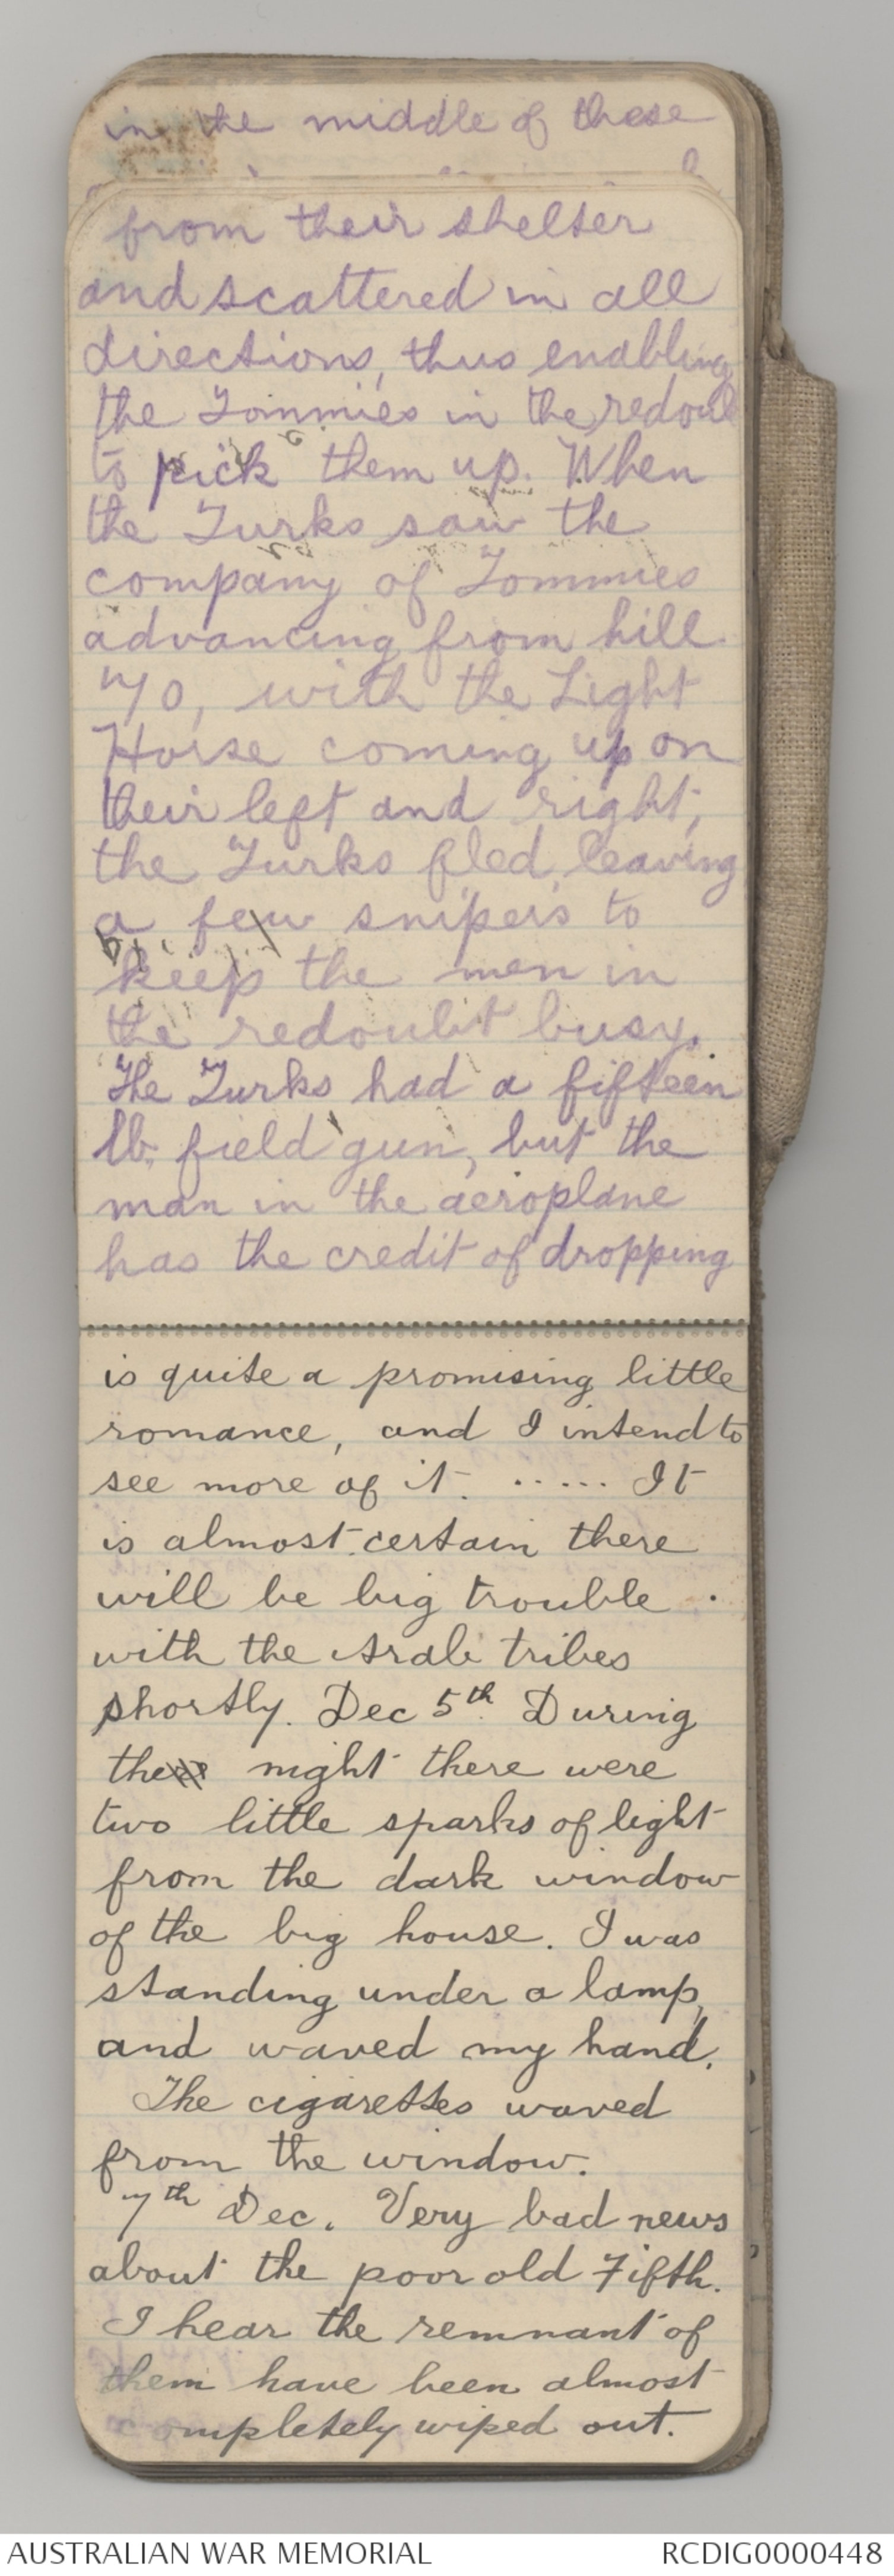 in the middle of these
from their shelter
and scattered in all
directions, thus enabling
the Tommies in the redoubt
to pick them up. When
the Turks saw the
company of Tommies
advancing from hill
70, with the Light
Horse coming up on
their left and right,
the Turks fled, leaving
a few snipers to
keep the men in
the redoubt busy.
The Turks had a fifteen
lb. field gun, but the
man in the aeroplane
has the credit of dropping
is quite a promising little
romance, and I intend to
see more of it. ..... It
is almost certain there
will be big trouble
with the Arab tribes
shortly. Dec 5th. During
the night there were
two little sparks of light
from the dark window
of the big house. I was
standing under a lamp,
and waved my hand.
The cigarettes waved
from the window.
7th Dec. Very bad news
about the poor old Fifth.
I hear the remnant of
them have been almost
completely wiped out.
AUSTRALIAN WAR MEMORIAL
RCDIG0000448